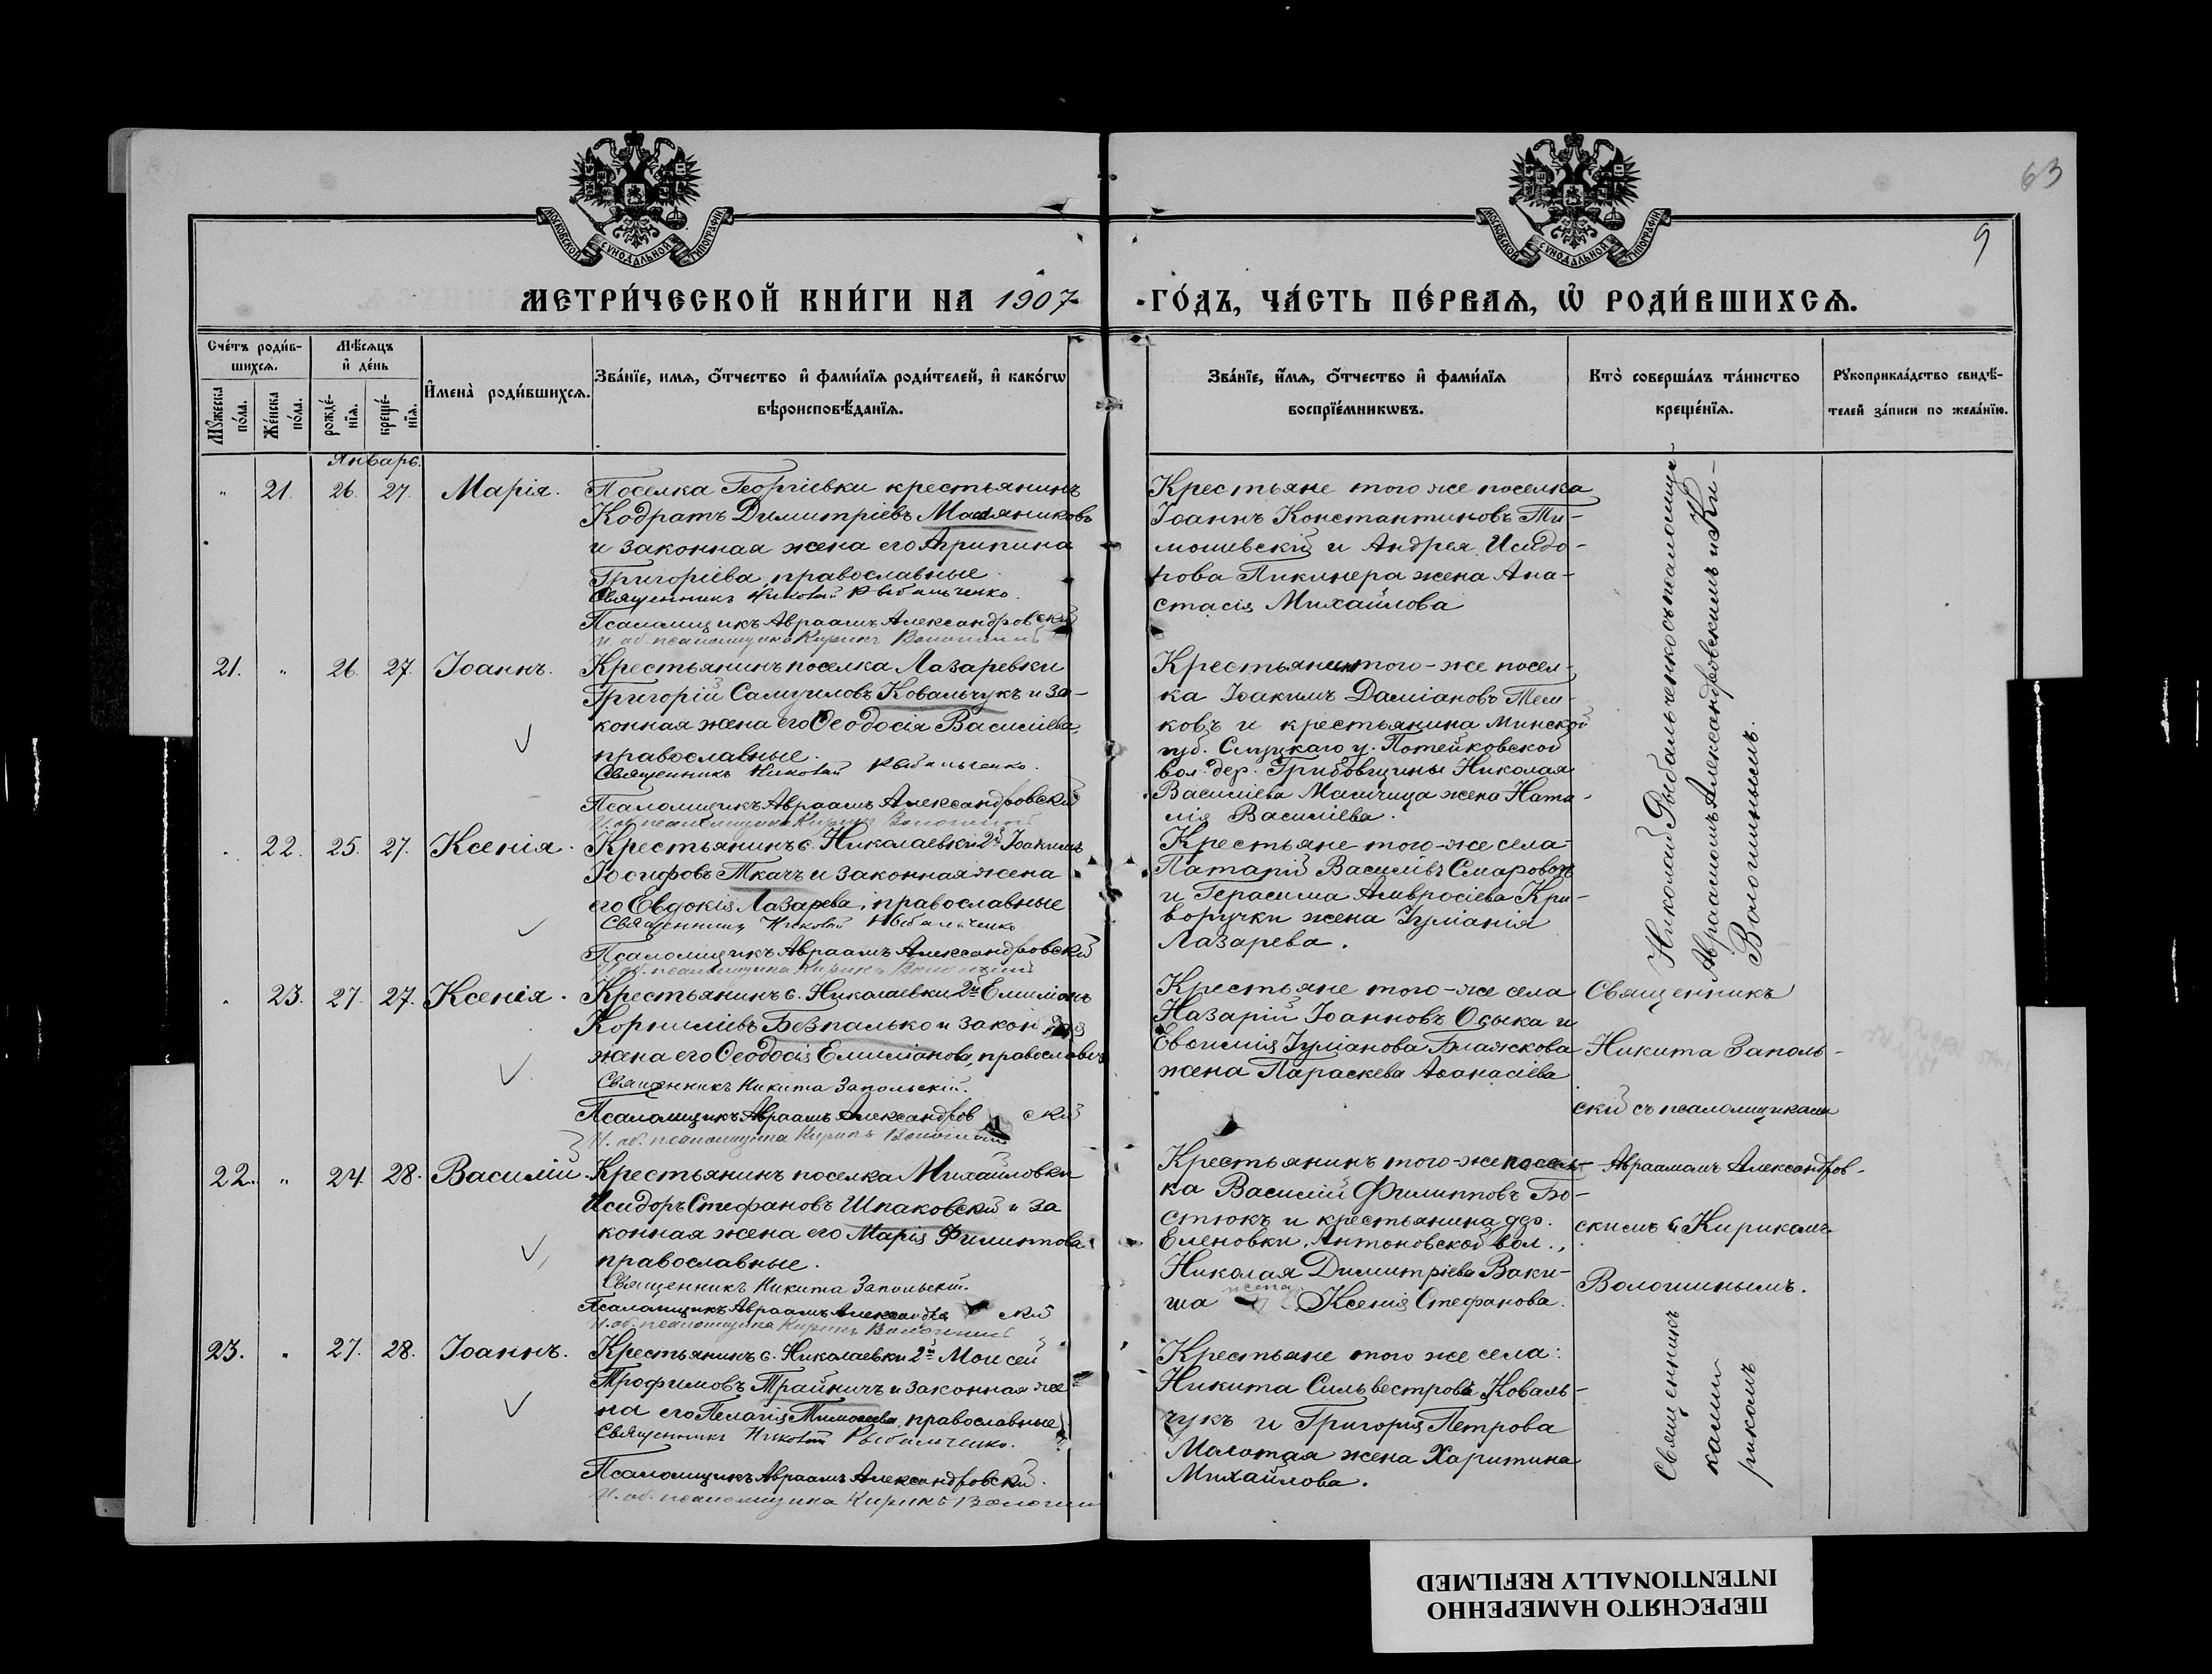 63
9
МОСКОВСКОЙ СѴНОДАЛЬНОЙ ТИПОГРАФІИ
МОСКОВСКОЙ СѴНОДАЛЬНОЙ ТИПОГРАФІИ
МЕТРИ́ЧЕСКОЙ КНИ́ГИ НА 1907
ГО́ДЪ, ЧА́СТЬ ПЕ́РВАѦ, Ѽ РОДИ́ВШИХСѦ.
Сче́тъ роди́в-
шихсѧ.
Мꙋжеска по́ла.
Же́нска по́ла.
Мѣ́сѧцъ
и҆ де́нь
рожде́-
нїѧ.
креще́-
нїѧ.
И҆мена̀ роди́вшихсѧ.
Зва́нїе, имѧ, о҆́тчество и҆ фами́лїѧ роди́телей, и҆ како́гѡ
вѣроисповѣ́данїѧ.
Зва́нїе, и҆́мѧ, о҆́тчество и҆ фами́лїѧ
воспрїе́мникѡвъ.
Кто̀ соверша́лъ та́инство
креще́нїѧ.
Рꙋкоприкла́дство свидѣ́-
телей за́писи по жела́нїю.
Январь.
" 21. 26. 27. Марія.
Поселка Георгіевки крестьянинъ
Кодратъ Димитріевъ Масляниковъ
и законная жена его Агрипина
Григоріева, православные
Священникъ Николай Рыбальченко.
Псаломщикъ Авраамъ Александровскій
И. об. псаломщика Кирикъ Вологинъ
Крестьяне того же поселка
Іоаннъ Константиновъ Ти-
мошевскій и Андрея Исидо-
рова Пикинера жена Ана-
стасія Михайлова
21. " 26. 27. Іоаннъ.
Крестьянинъ поселка Лазаревки
Григорій Самуиловъ Ковальчукъ и за-
конная жена его Ѳеодосія Василіева,
православные.
Священникъ Николай Рыбальченко.
Псаломщикъ Авраамъ Александровскій
Крестьянинъ того-же посел-
ка Іоакимъ Даміановъ
ковъ и крестьянина Минской
губ. Слуцкаго у. Потейковской
вол. дер. Грибовщины Николая
Василіева жена Ната-
лія Василіева.
22. 25. 27. Ксенія.
Крестьянинъ с. Николаевки 2й Іоакимъ
Іосифовъ Ткачъ и законная жена
его Евдокія Лазарева, православные
Священникъ Николай Рыбальченко.
Псаломщикъ Авраамъ Александровскій
Крестьяне того-же села
Василіевъ
и Герасима Амвросіева Кри-
воручки жена Іуліанія
Лазарева.
Николай Рыбальченко съ псаломщи-
Авраамомъ Александровскимъ и Ки-
Вологинымъ.
23. 27. 27. Ксенія.
Крестьянинъ с. Николаевки 2й Емиліанъ
Корниліевъ Безпалько и законная
жена его Ѳеодосія Емиліанова, православные
Священникъ Никита Запольскій.
Псаломщикъ Авраамъ Александровскій
И. об. псаломщика Кирикъ
Крестьяне того-же села
Назарій Іоанновъ Осыка и
Евѳимія Іуліанова Блажкова
жена Параскева Аѳанасіева
Священникъ
Никита Заполь-
скій съ псаломщиками
Авраамомъ Александров-
скимъ и Кирикомъ
Вологинымъ.
22. " 24. 28. Василій.
Крестьянинъ поселка Михайловки
Исидоръ Стефановъ Шпаковскій и за
конная жена его Марія Филиппова
православные.
Священникъ Никита Запольскій.
Крестьянинъ того-же посел-
ка Василій Филипповъ Бо-
стюкъ и крестьянина дер.
Еленовки, Антоновской вол.,
Николая Димитріева Ваки-
ша жена Ксенія Стефанова.
23. " 27. 28. Іоаннъ.
Крестьянинъ с. Николаевки 2й Моисей
Трофимовъ Трайничъ и законная же-
на его Пелагія Тимоѳеева, православные
Священникъ Николай Рыбальченко.
Псаломщикъ Авраамъ Александровскій.
И. об. псаломщика Кирикъ Вологинъ
Крестьяне того же села:
Никита Сильвестровъ Коваль-
чукъ и Григорія Петрова
Молотая жена Харитина
Михайлова.
Священникъ
ками
рикомъ
ПЕРЕСНЯТО НАМЕРЕННО
INTENTIONALLY REFILMED